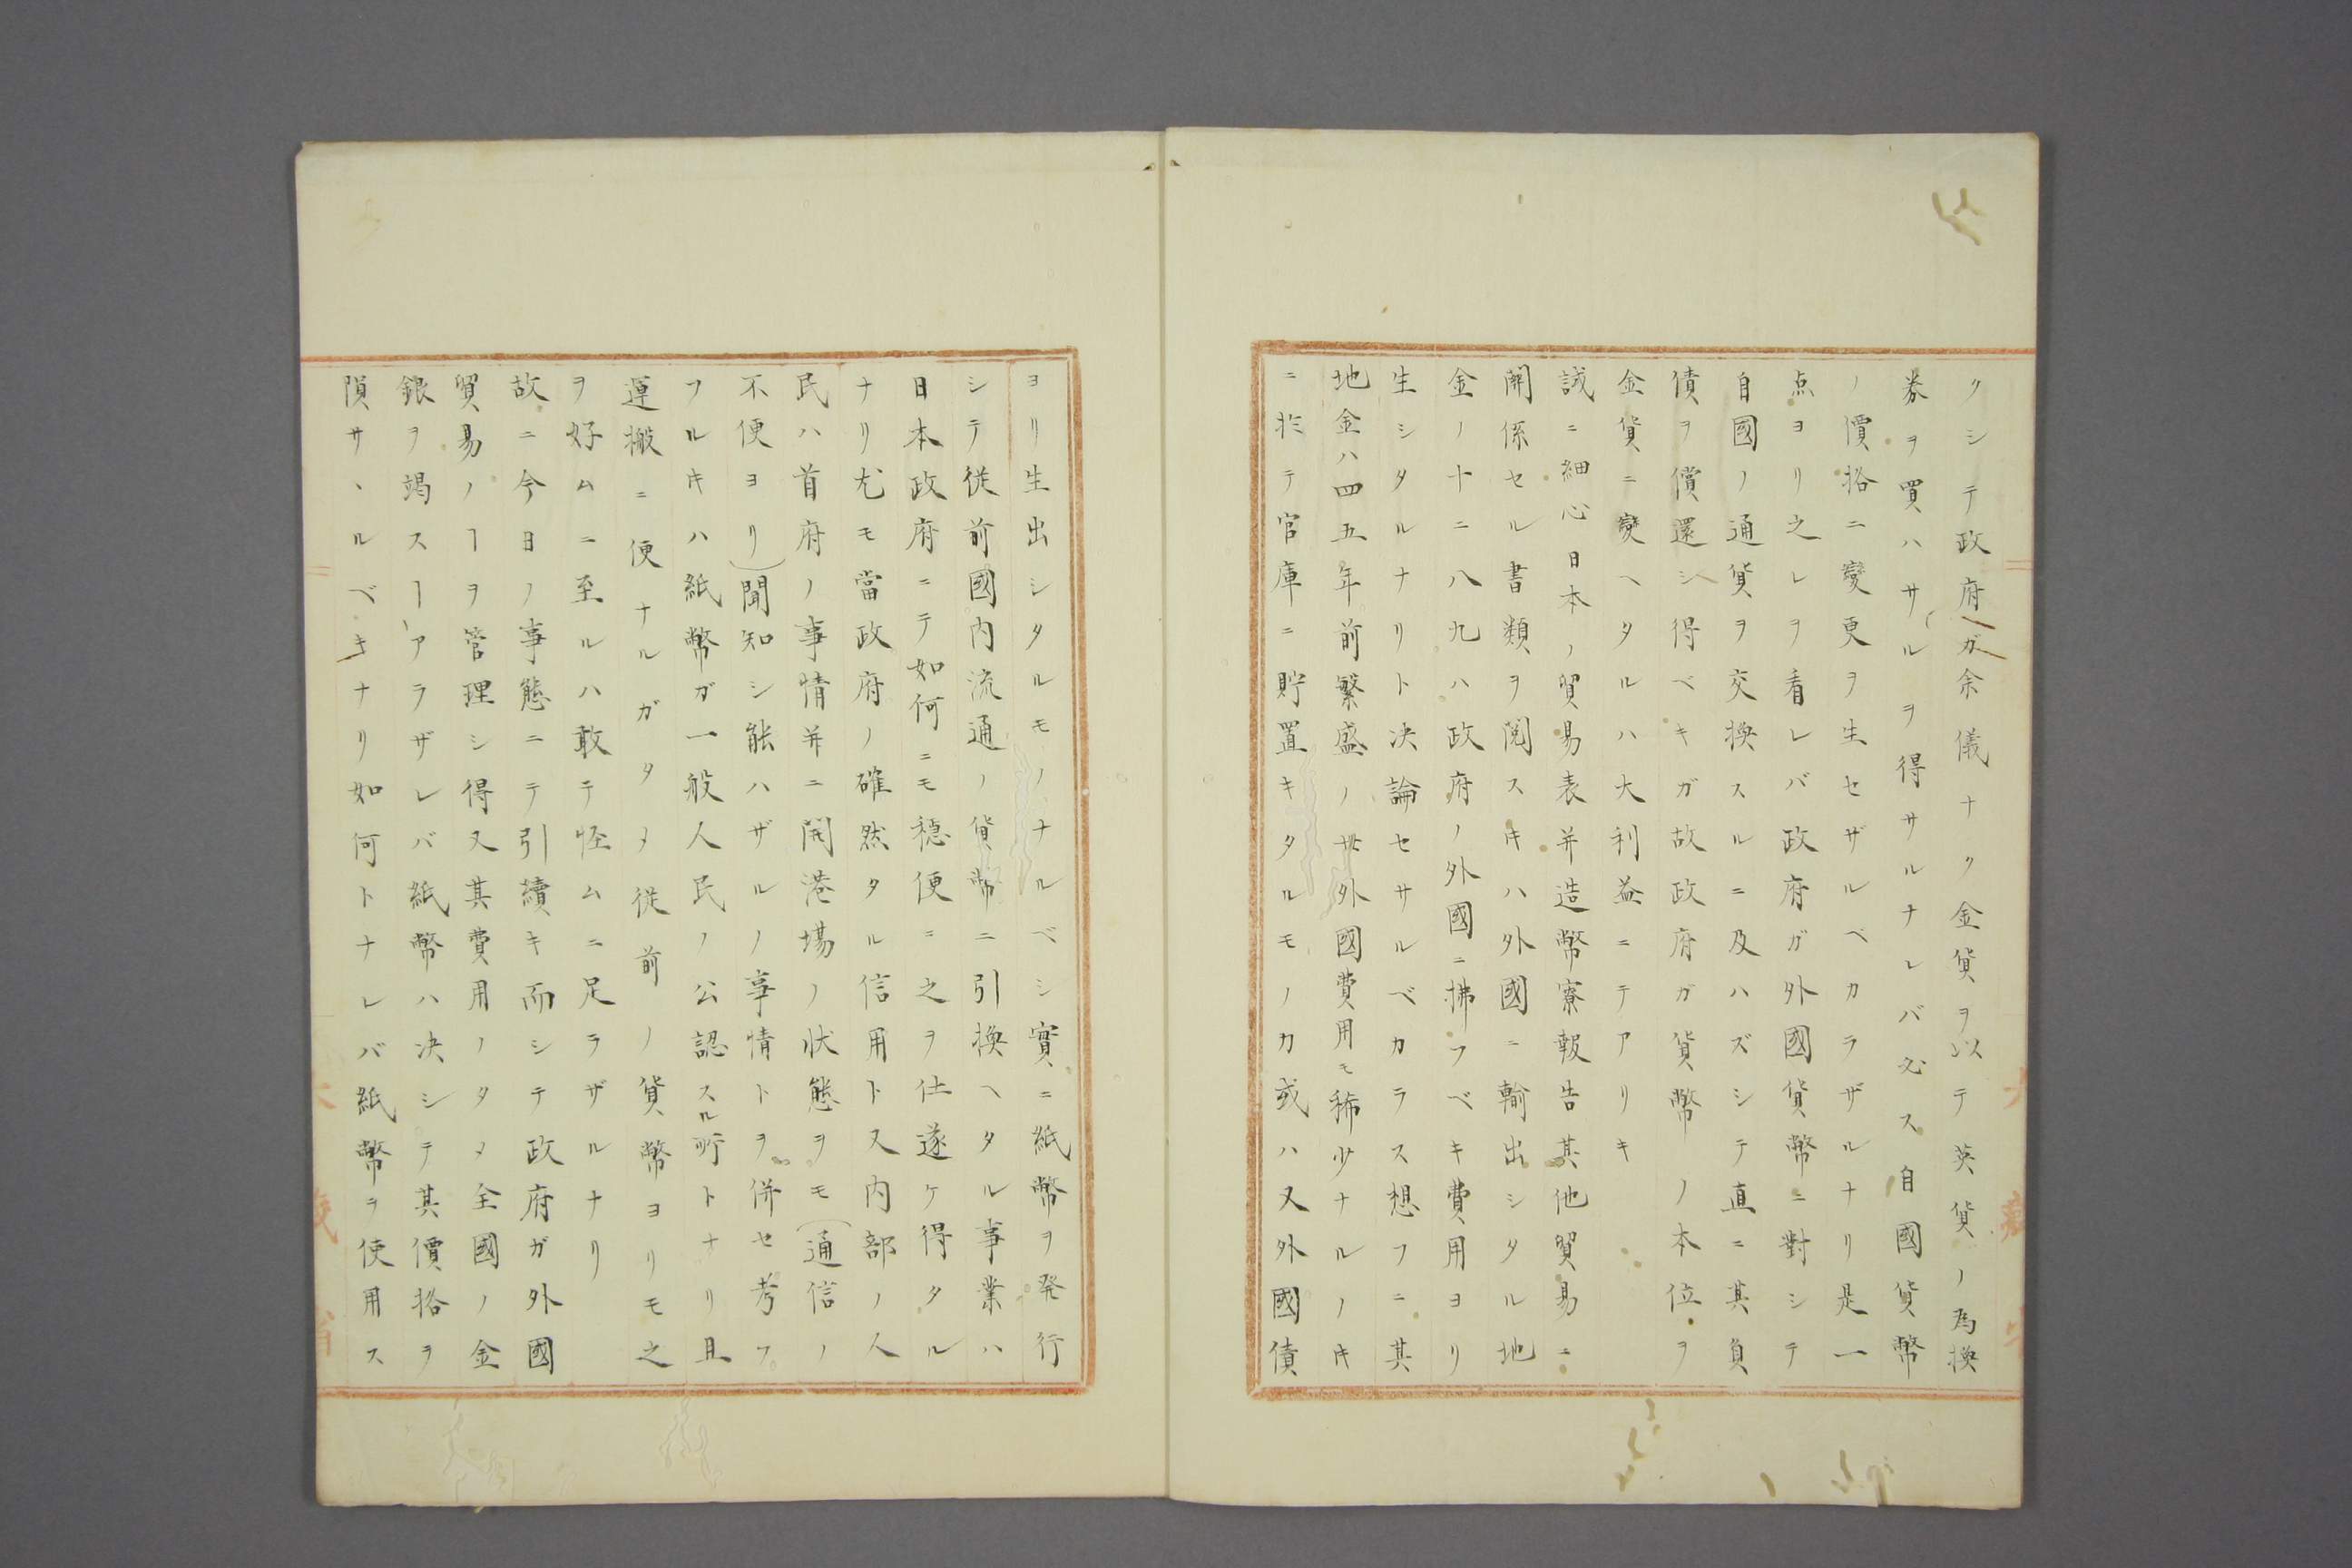 クシテ政府ガ余儀ナク金貨ヲ以テ英貨ノ為換
券ヲ買ハサルヲ得サルナレバ必ス自國貨幣
ノ價格ニ變更ヲ生セザルベカラザルナリ是一
点ヨリ之レヲ看レバ政府ガ外國貨幣ニ對シテ
自國ノ通貨ヲ交換スルニ及ハズシテ直ニ其負
債ヲ償還シ得ベキガ故政府ガ貨幣ノ本位ヲ
金貨ニ變ヘタルハ大利益ニテアリキ
誠ニ細心日本ノ貿易表并造幣寮報告其他貿易ニ
関係セル書類ヲ閲スルキハ外國ニ輸出シタル地
金ノ十ニ八九ハ政府ノ外國ニ拂フベキ費用ヨリ
生シタルナリト决論セサルベカラス想フニ其
地金ハ四五年前繁盛ノ世外國費用モ稀少ナルノキ
ニ於テ官庫ニ貯置キタルモノカ或ハ又外國債
ヨリ生出シタルモノナルベシ實ニ紙幣ヲ発行
シテ従前國内流通ノ貨幣ニ引換ヘタル事業ハ
日本政府ニテ如何ニモ穏便ニ之ヲ仕遂ケ得タル
ナリ尤モ當政府ノ確然タル信用ト又内部ノ人
民ハ首府ノ事情并ニ開港場ノ状態ヲモ(通信ノ
不便ヨリ)聞知シ能ハザルノ事情トヲ併セ考フ
フルキハ紙幣ガ一般人民ノ公認スル所トナリ且
運搬ニ便ナルガタメ従前ノ貨幣ヨリモ之
ヲ好ムニ至ルハ敢テ怪ムニ足ラザルナリ
故ニ今日ノ事態ニテ引續キ而シテ政府ガ外國
貿易ノヿヲ管理シ得又其費用ノタメ全國ノ金
銀ヲ竭スヿアラザレバ紙幣ハ决シテ其價格ヲ
隕サヽルベキナリ如何トナレバ紙幣ヲ使用ス